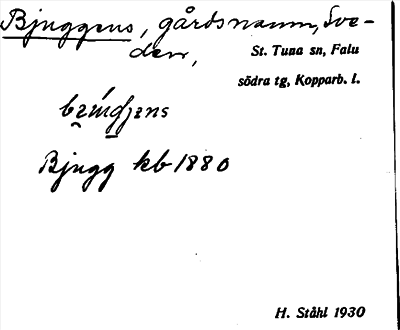 Bjuggens, gårdsnamn, Sve-
den,
St. Tuna sn, Falu
södra tg, Kopparb. l.
Bjugg kb 1880
H. Ståhl 1930